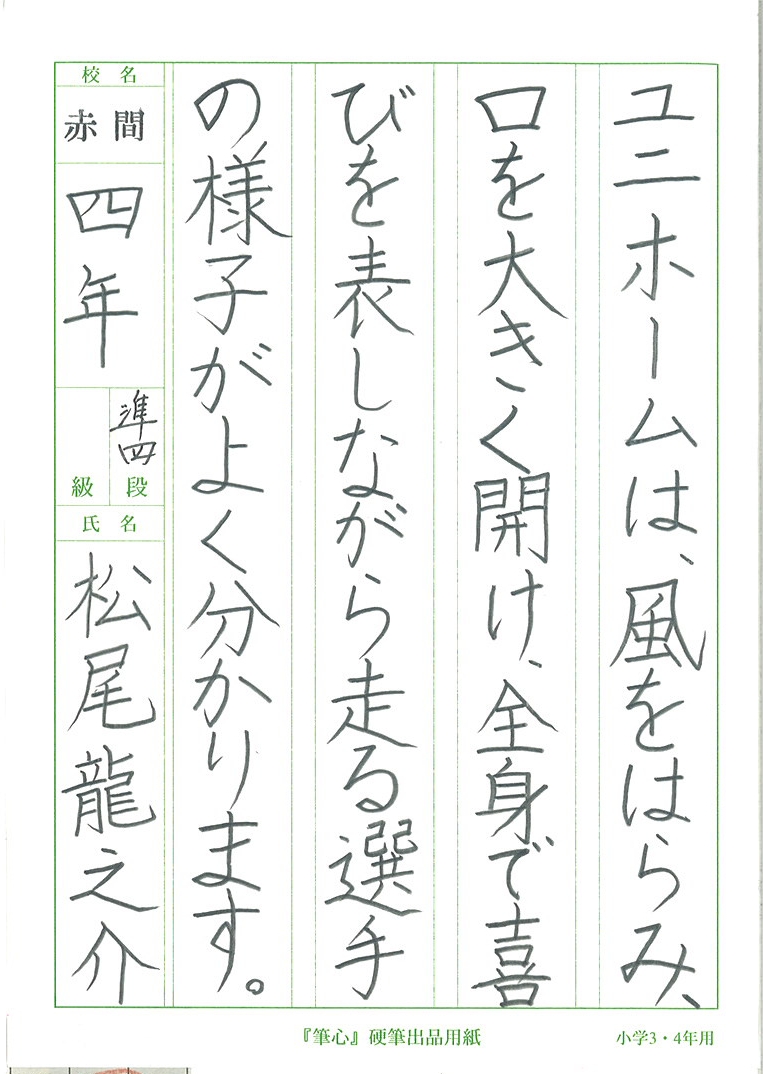 ユニホームは、風をはらみ、
口を大きく開け、全身で喜
びを表しながら走る選手
の様子がよく分かります。
校名
赤間
四年
準四
段
級
氏名
松尾龍之介
『筆心』硬筆出品用紙
小学3・4年用